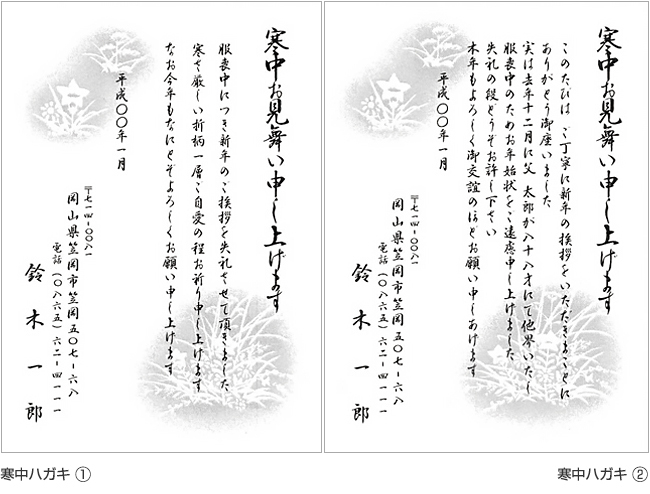 寒中お見舞い申し上げます
服喪中につき新年のご挨拶を失礼させて頂きました
寒さ厳しい折柄一層ご自愛の程お祈り申し上げます
なお今年もなにとぞよろしくお願い申し上げます
平成〇〇年一月
〒七一四-〇〇八一
岡山県笠岡市笠岡五〇七-六八
電話(〇八六五)六二-四一一一
鈴木一郎
寒中ハガキ ①
寒中お見舞い申し上げます
このたびは ご丁寧に新年の挨拶をいただきまことに
ありがとう御座いました
実は去年十二月に父 太郎が八十八才にて他界いたし
服喪中のためお年始状をご遠慮申し上げました
失礼の段どうぞお許し下さい
本年もよろしく御交誼のほどお願い申しあげます
平成〇〇年一月
〒七一四-〇〇八一
岡山県笠岡市笠岡五〇七-六八
電話(〇八六五)六二-四一一一
鈴木一郎
寒中ハガキ ②